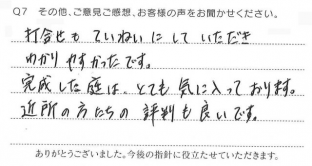 Q7 その他、ご意見ご感想、お客様の声をお聞かせください。
打合せも ていねいに して いただき
わかり やすかったです。
完成した庭は、とても 気に入って おります。
近所の 方たちの 評判も良いです。
ありがとうございました。今後の指針に役立たせていただきます。